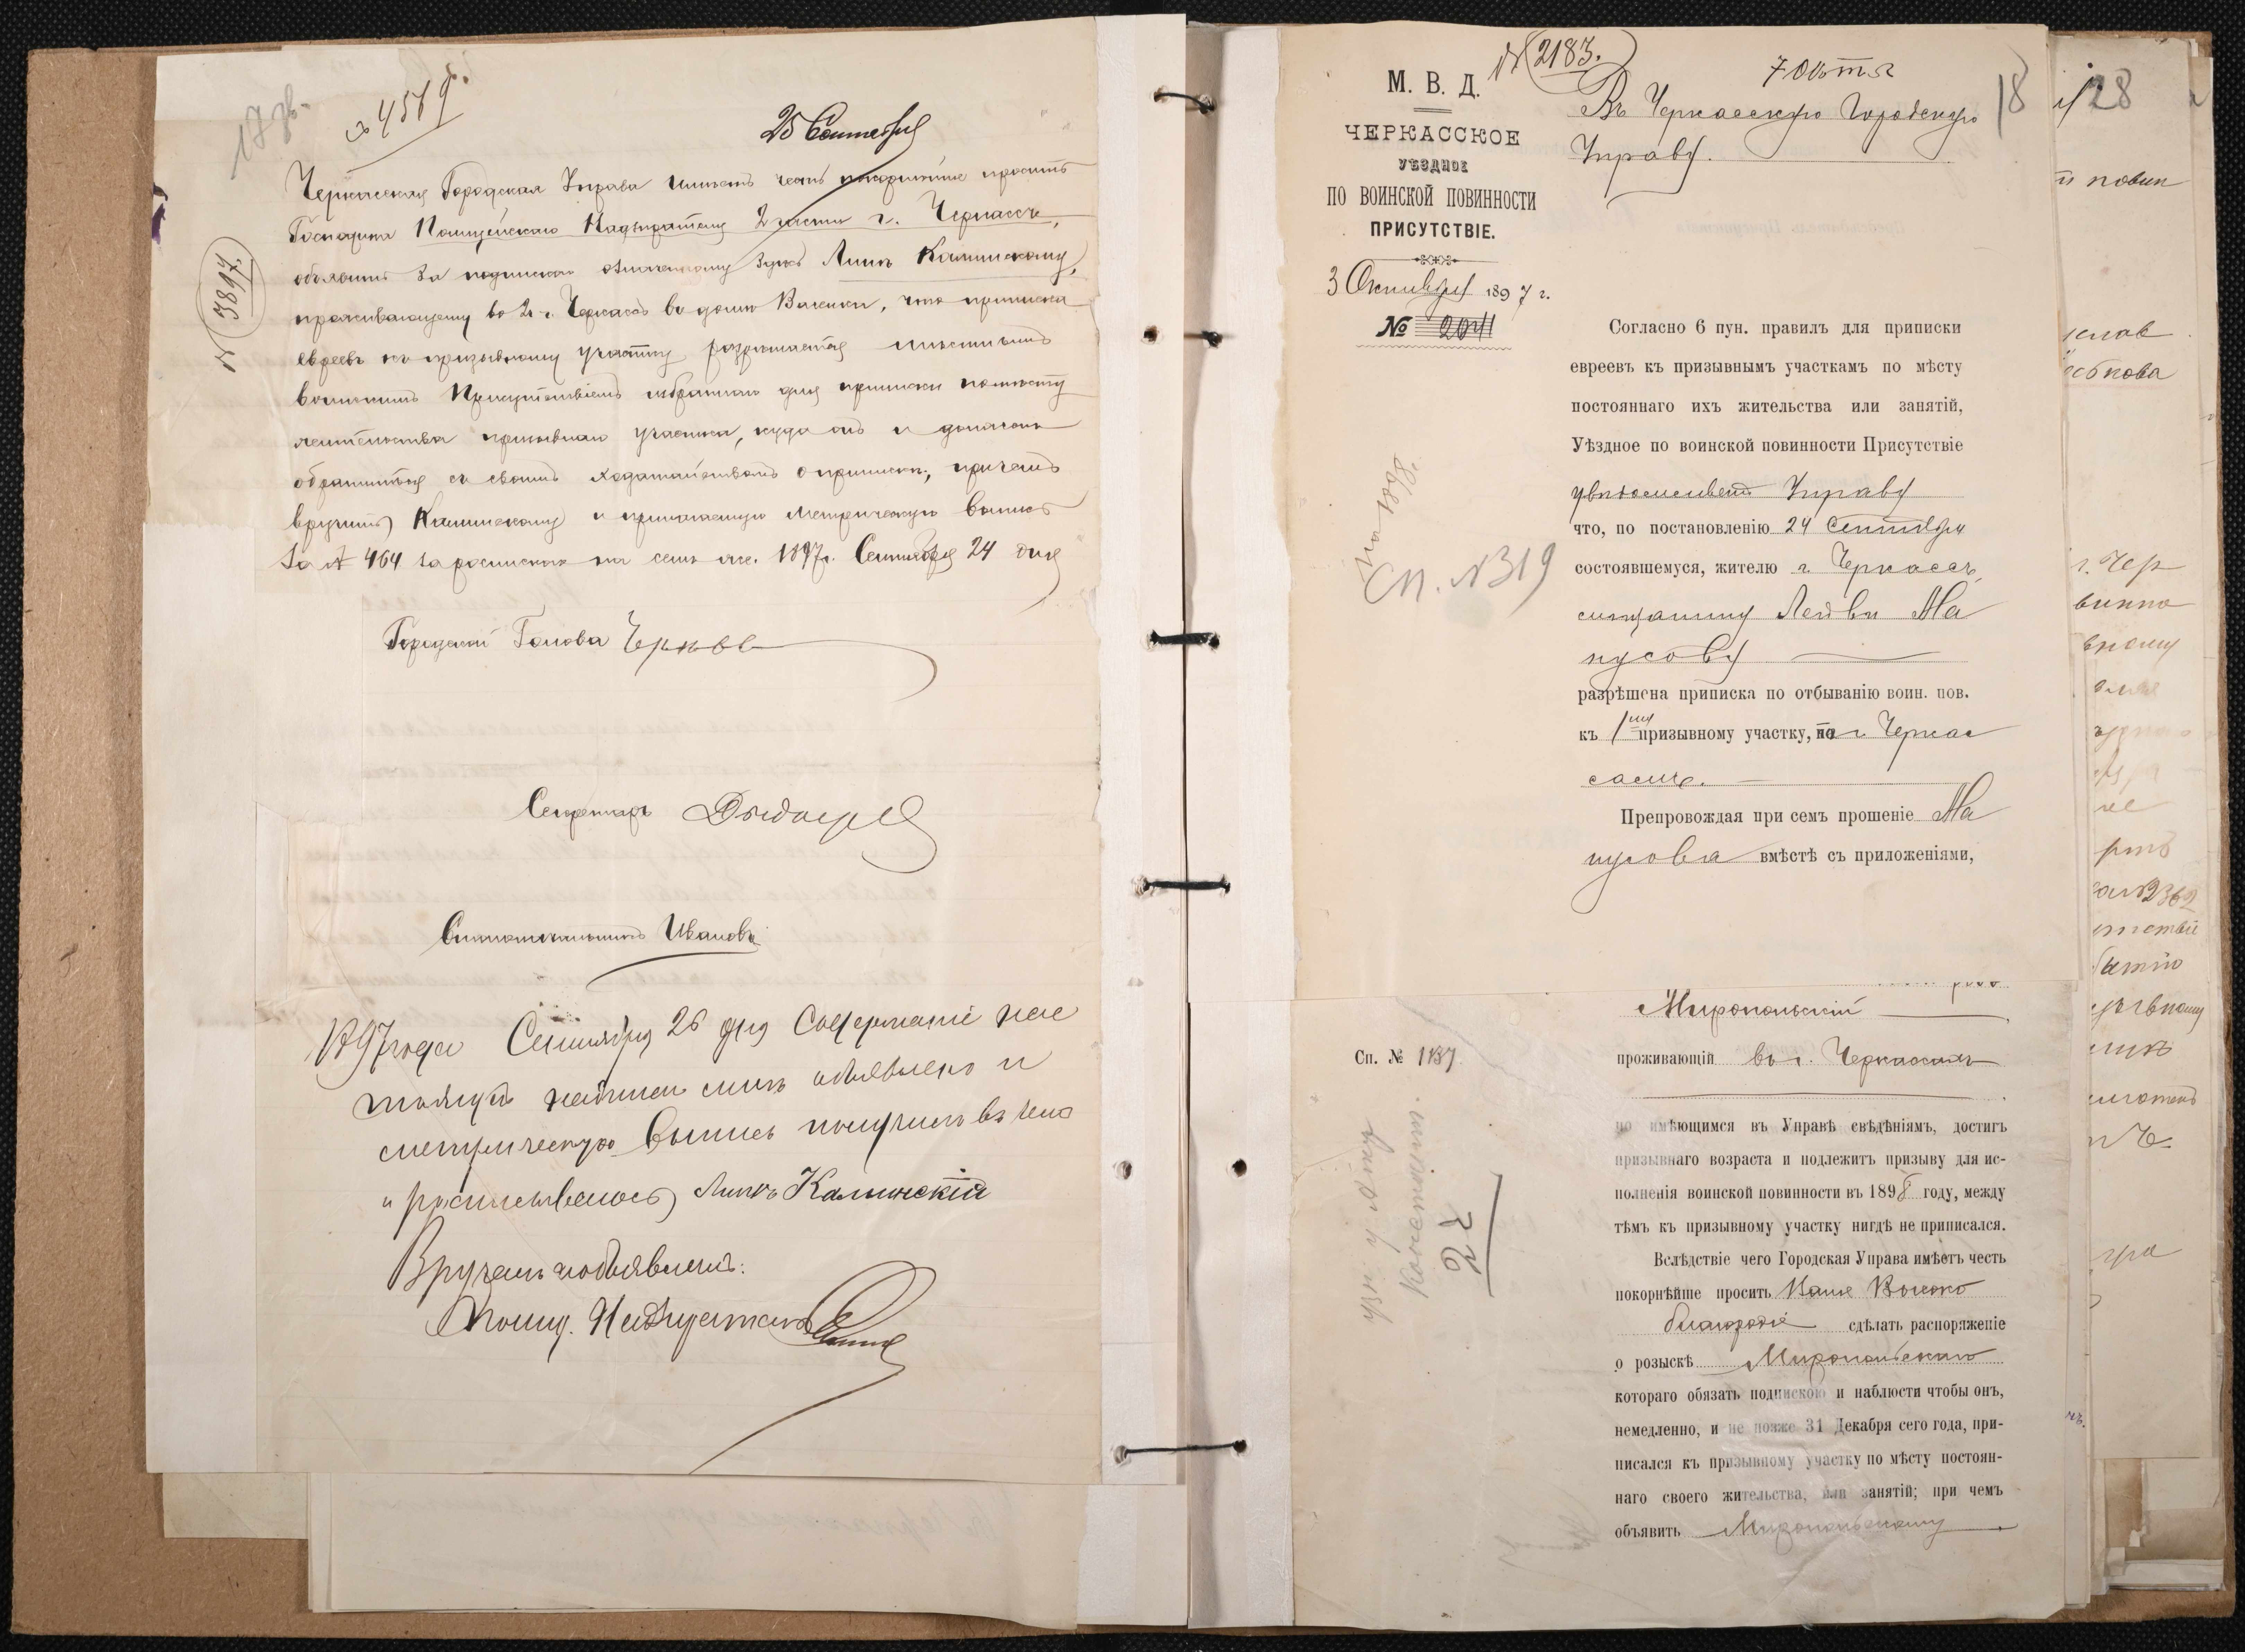 17 зв.
№ 4519.
25 Сентября
№ 3897.
Черкасская Городская Управа имѣетъ честь покорнѣйше просить
Господина Полицейскаго Надзирателя 2 части г. Черкассъ,
объявить за подпискою Липѣ Калинскому,
проживающему во 2 ч. г. Черкассъ въ домѣ, что приписка
евреевъ къ призывному участку разрѣшается мѣстнымъ
воинскимъ Присутствіемъ избраннаго для приписки по мѣсту
жительства призывнаго участка, куда онъ и долженъ
обратиться съ своимъ ходатайствомъ о припискѣ, причемъ
вручить Калинскому и прилагаемую метрическую выпись
за № 464 за роспискою на семъ же. 1897 г. Сентября 24 дня
Городской Голова
Секретарь
Иванов
1897 года Сентября 26 дня Содержаніе нас
тоящей надписи мнѣ объявлено и
метрическую выпись получилъ въ чемъ
и росписываюсь Липа Калинскій
Вручилъ и объявилъ:
Полиц. Надзиратель
№ 2183.
7 Октя
18
М. В. Д.
ЧЕРКАССКОЕ
УѢЗДНОЕ
ПО ВОИНСКОЙ ПОВИННОСТИ
ПРИСУТСТВІЕ.
3 Октября 1897 г.
№ 2041
Въ Черкасскую Городскую
Управу.
Согласно 6 пун. правилъ для приписки
евреевъ къ призывнымъ участкамъ по мѣсту
постояннаго ихъ жительства или занятій,
Уѣздное по воинской повинности Присутствіе
увѣдомляетъ Управу
что, по постановленію 24 Сентября
состоявшемуся, жителю г. Черкассъ,
мѣщанину Лейбѣ Ма
нусову
разрѣшена приписка по отбыванію воин. пов.
къ 1му призывному участку, по г. Черкас
самъ.
Препровождая при семъ прошеніе Ма
нусова вмѣстѣ съ приложеніями,
на 1898 г.
Сп. № 319
Миропольскій
Сп. № 1137
проживающій въ г. Черкассахъ
по имѣющимся въ Управѣ свѣдѣніямъ, достигъ
призывнаго возраста и подлежитъ призыву для ис-
полненія воинской повинности въ 1898 году, между
тѣмъ къ призывному участку нигдѣ не приписался.
Вслѣдствіе чего Городская Управа имѣетъ честь
покорнѣйше просить Ваше Высоко
благородіе сдѣлать распоряженіе
о розыскѣ Миропольскаго
котораго обязать подпискою и наблюсти чтобы онъ,
немедленно, и не позже 31 Декабря сего года, при-
писался къ призывному участку по мѣсту постоян-
наго своего жительства, или занятій; при чемъ
объявить Миропольскому
28
повин
г. Чер
2362